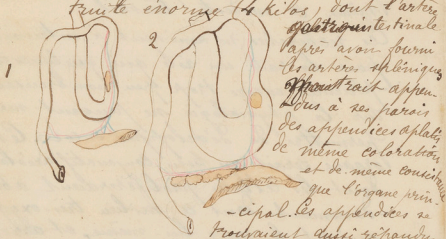 truite énorme (4 kilos, dont l'artère
gastriquintestinale
après avoir fourni
1
2
les artères spléniques
trait appen-
dus à ses parois
des appendices aplatis
de même coloration
et de même consist
que l'organe prin-
-cipal. Ces appendices se
trouvaient aussi répandu